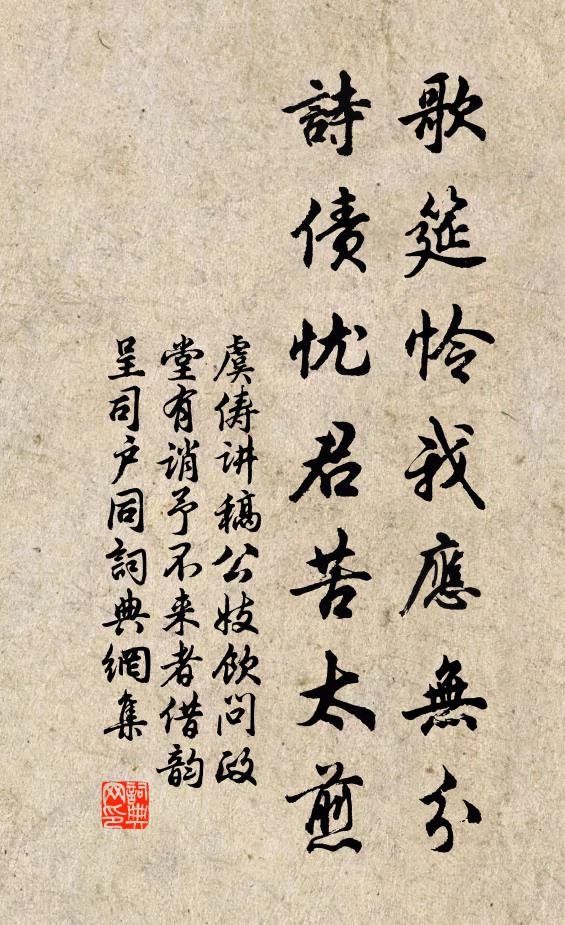 歌筵怜我應無分
詩債忧君苦太煎
虞俦讲稿公妓飲问政
堂有誚予不来者借韵
呈司户同詞典網集
詞典网印